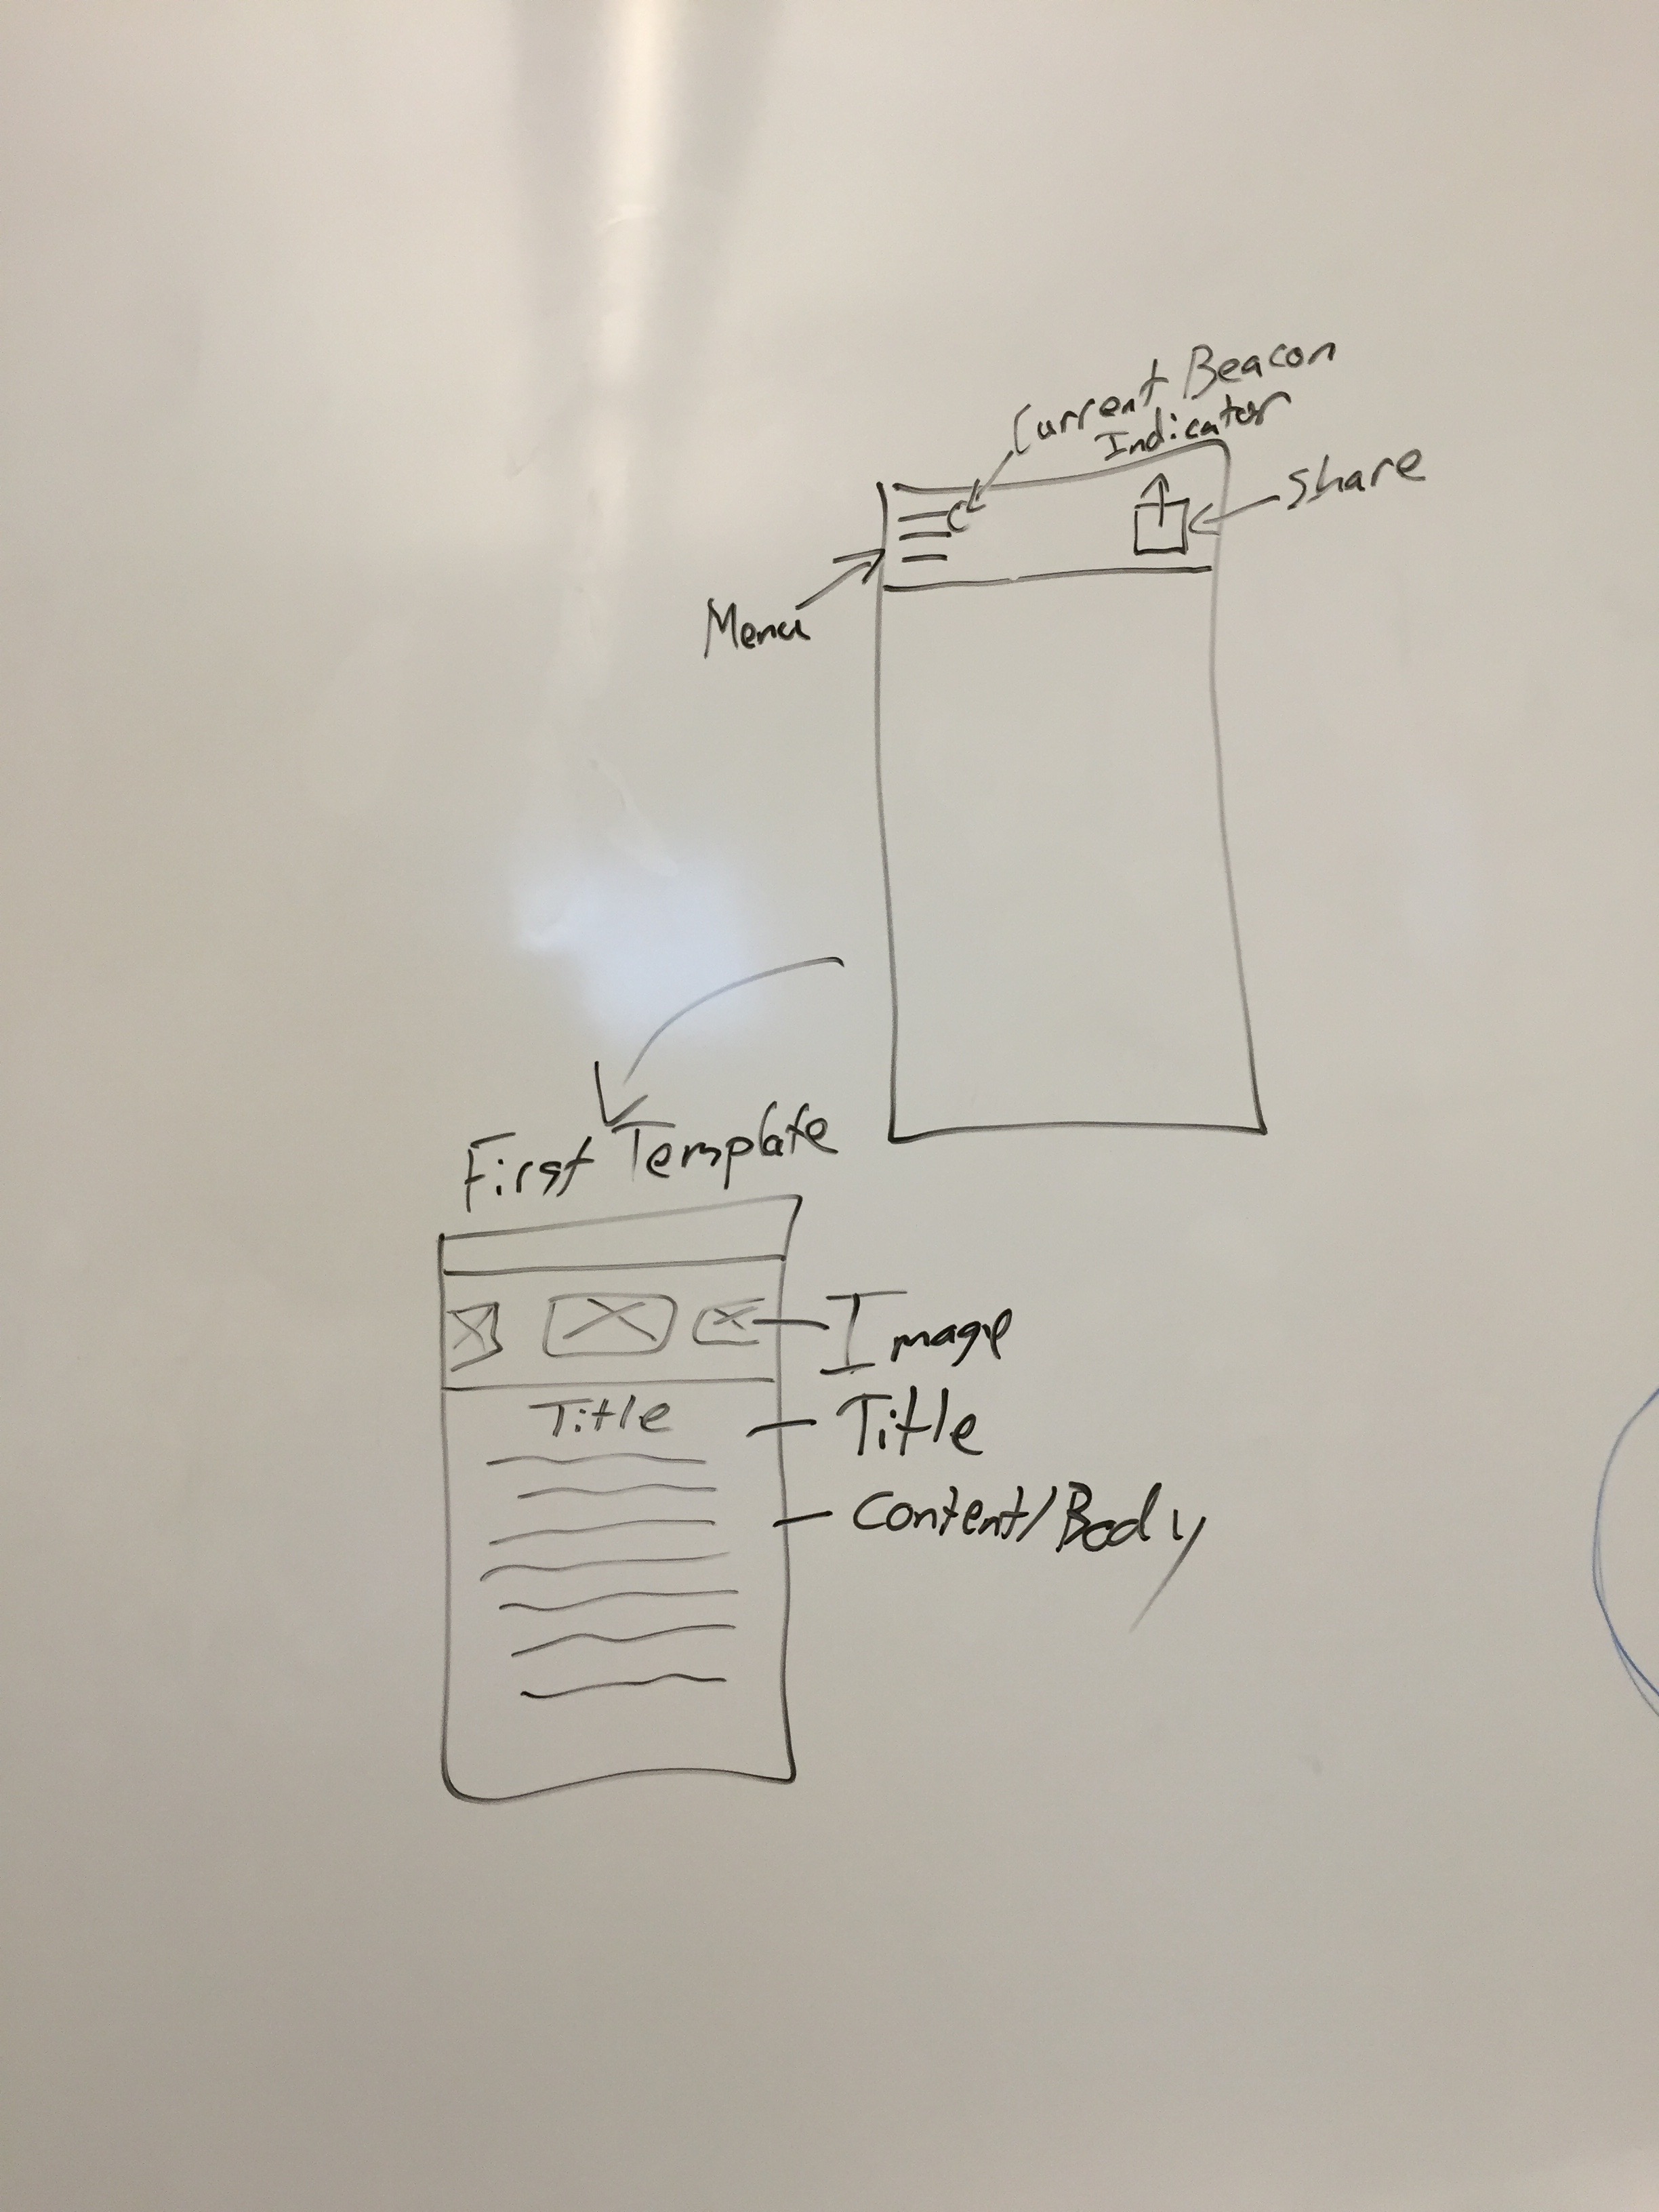 Current Beacon
Indicator
Share
Menu
First Template
Image
Title
Title
Content/Body